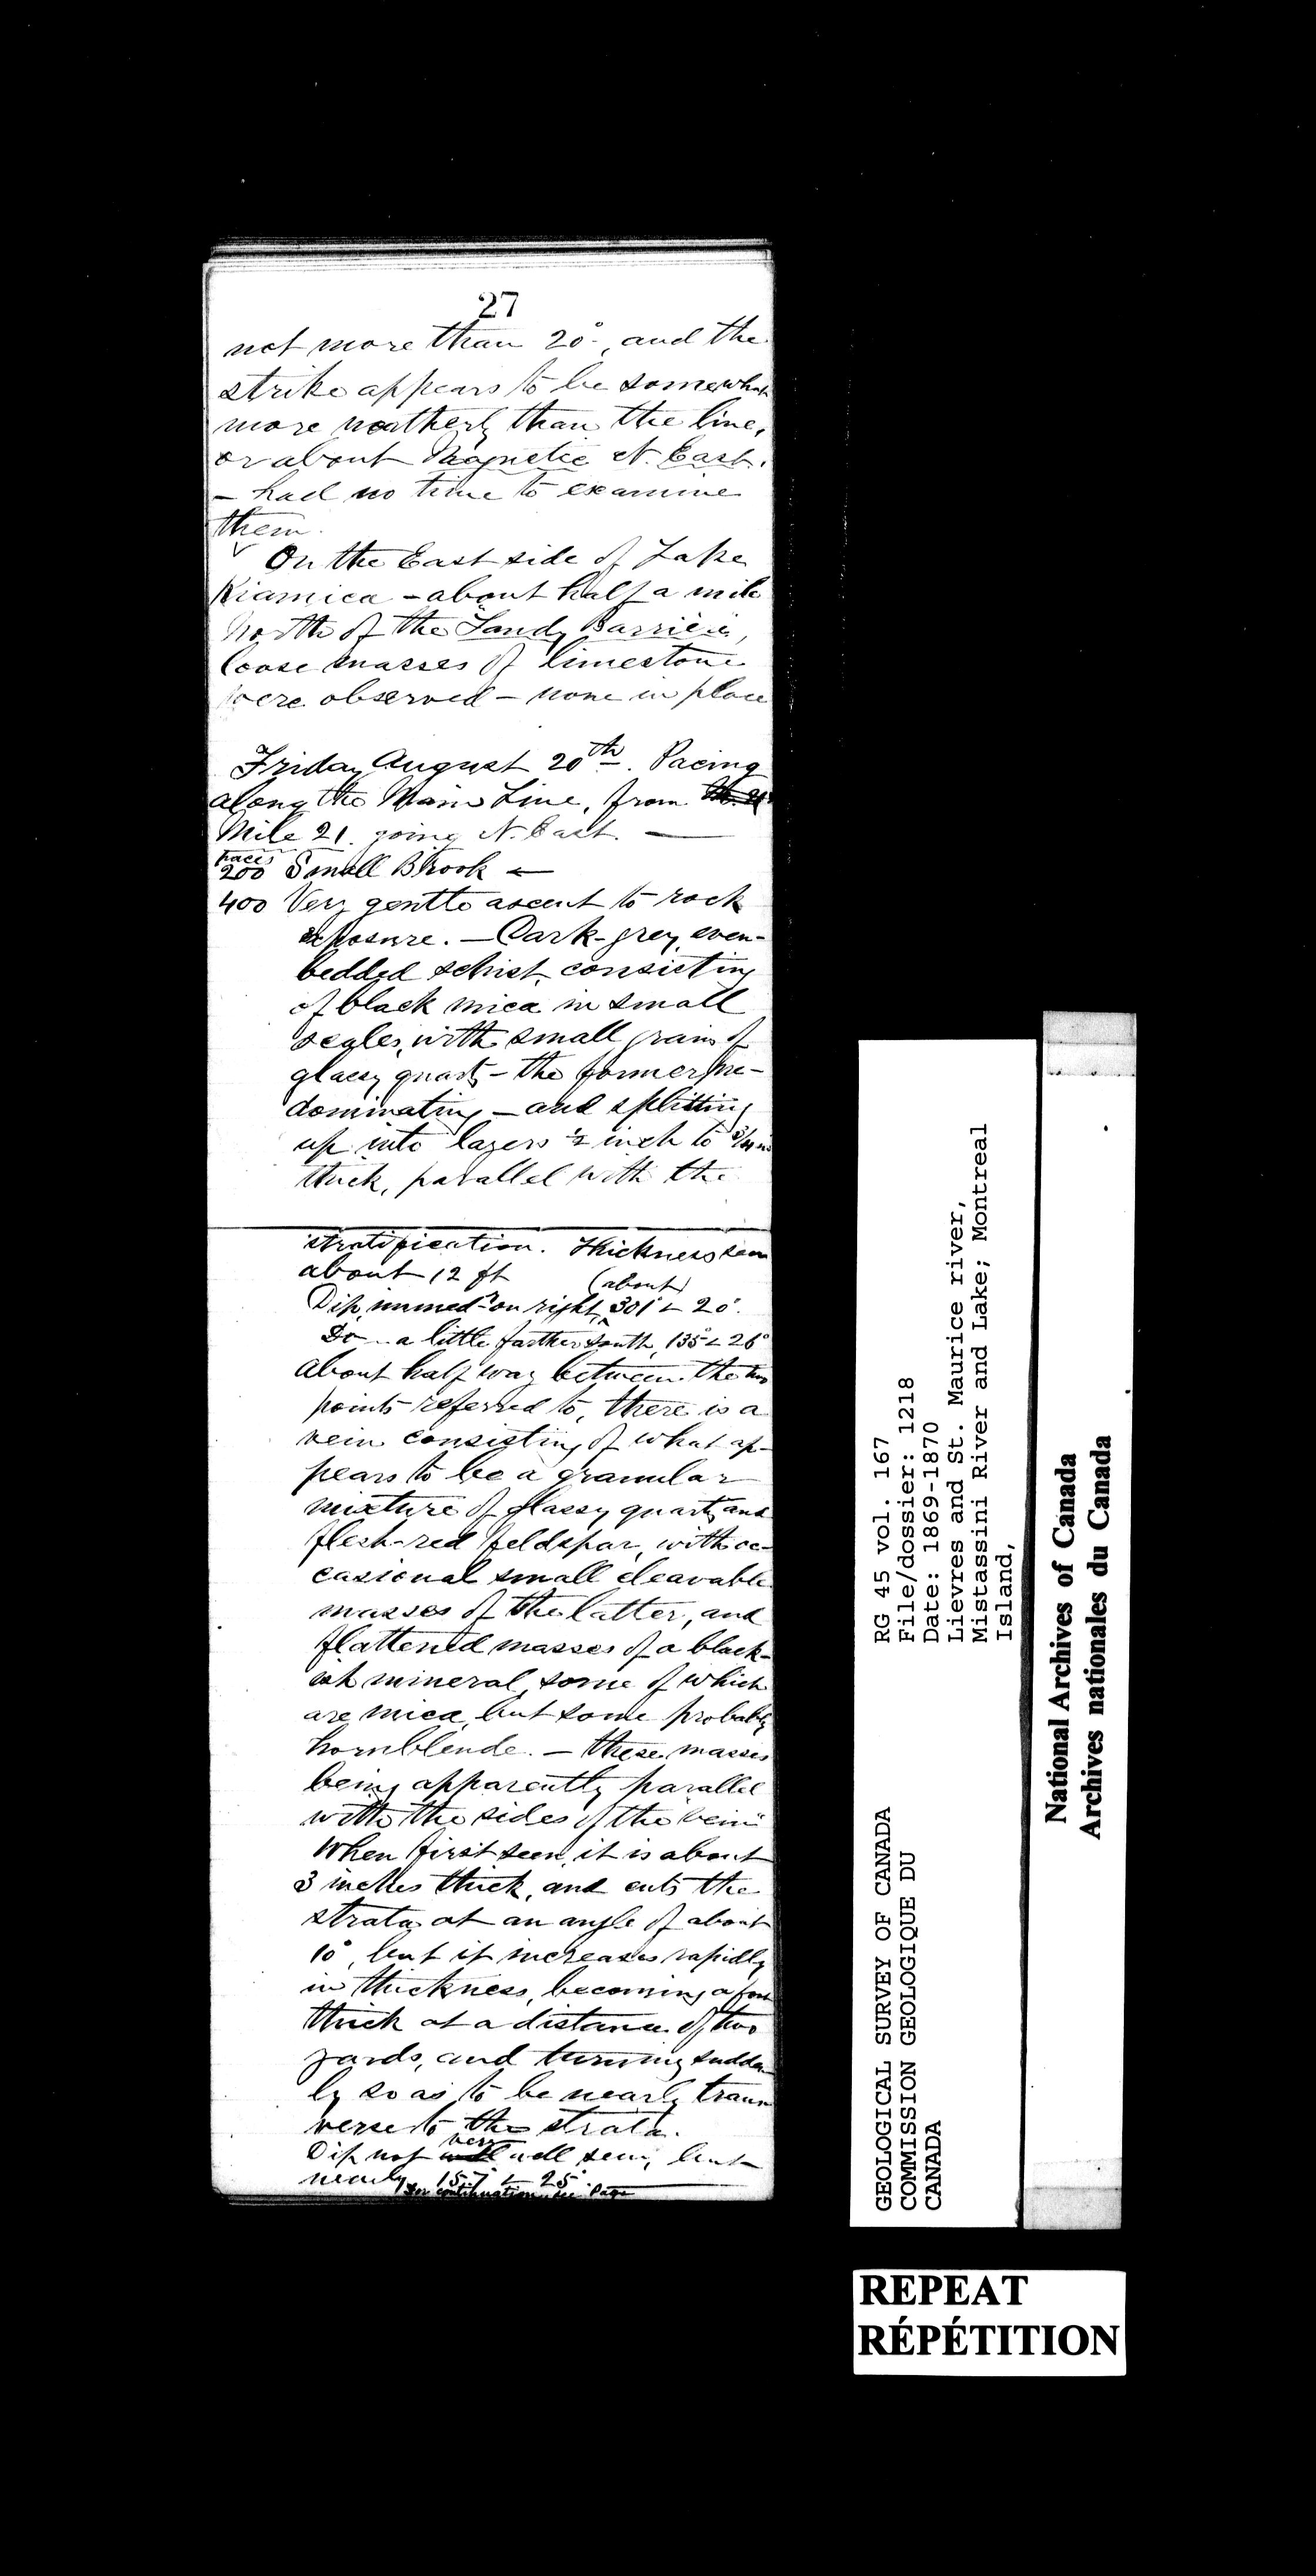 27
not more than 20°, and the
strike appears to be somewhat
more northerly than the line,
or about Magnetic N. East.
- had no time to examine
them.
On the East side of Lake
Kiamica - about half a mile
North of the Sandy Barrière,
loose masses of limestone
were observed - none in place
Friday August 20th. Pacing
along the Main Line, from
Mile 21. going N. East. —
Paces
200 Small Brook ←
400 Very gentle ascent to rock
exposure. — Dark-grey, even-
bedded schist, consisting
of black mica in small
scales, with small grains of
glassy quartz - the former pre-
dominating - and splitting
up into layers ½ inch to ¾ in
thick, parallel with the
stratification. Thickness seen
about 12 ft
(about)
Dip, immed. on right, 301° ∠ 20°.
Do - a little farther south, 135° ∠ 26°
About half way between the two
points referred to, there is a
vein consisting of what ap-
pears to be a granular
mixture of glassy quartz and
flesh-red feldspar, with oc-
casional small cleavable
masses of the latter, and
flattened masses of a black-
ish mineral, some of which
are mica, but some probably
hornblende. - these masses
being apparently parallel
with the sides of the vein
When first seen, it is about
3 inches thick, and cuts the
strata at an angle of about
10°, but it increases rapidly
in thickness, becoming a foot
thick at a distance of two
yards, and turning sudden
ly so as to be nearly trans
verse to the strata.
very
Dip not well seen, but
nearly 157° ∠ 25°
For continuation see Page
RG 45 vol. 167
File/dossier: 1218
Date: 1869-1870
Lievres and St. Maurice river,
Mistassini River and Lake; Montreal
Island,
GEOLOGICAL SURVEY OF CANADA
COMMISSION GEOLOGIQUE DU
CANADA
National Archives of Canada
Archives nationales du Canada
REPEAT
RÉPÉTITION